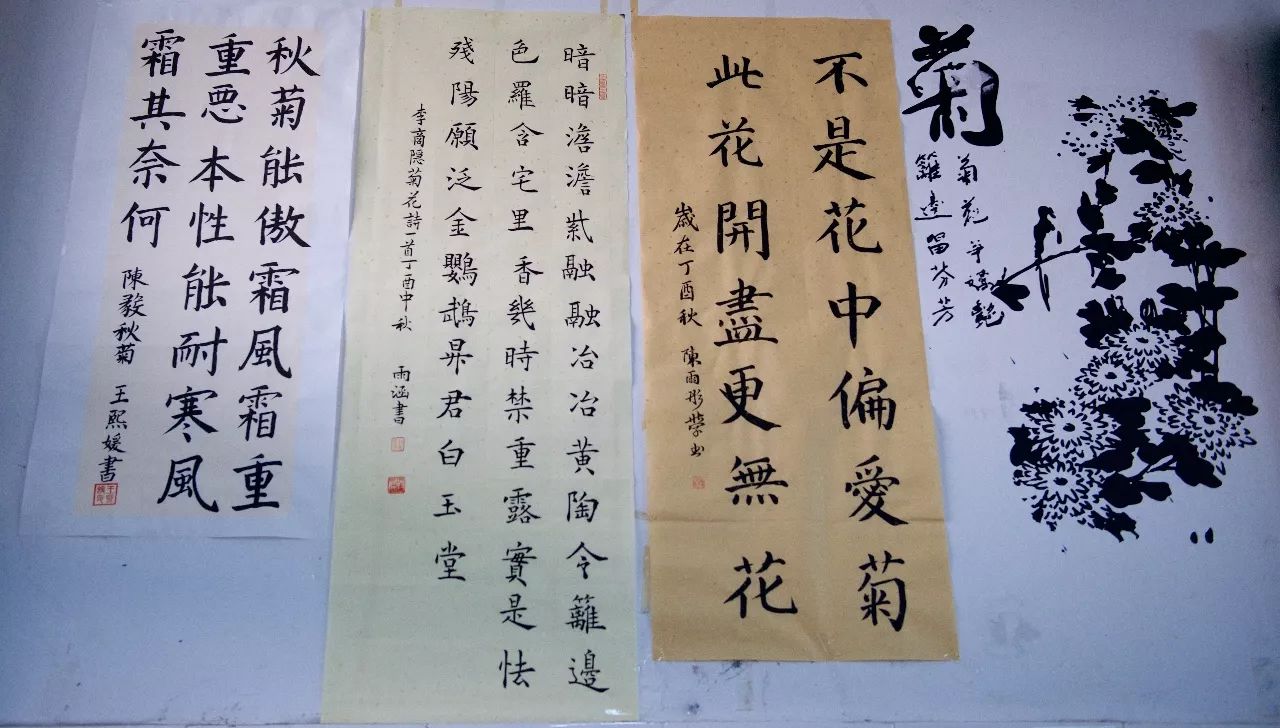 菊
菊
籬邊留芬芳
不是花中偏愛菊
此花開盡更無花
歲在丁酉秋 陳雨彤 書
暗暗澹澹紫融融冶冶黃陶令籬邊
色羅含宅里香幾時禁重露實是怯
殘陽願泛金鸚鵡昇君白玉堂
李商隱菊花詩一首丁酉中秋 雨涵書
秋菊能傲霜風霜重
重惡本性能耐寒風
霜其奈何
陳毅秋菊 王熙媛書